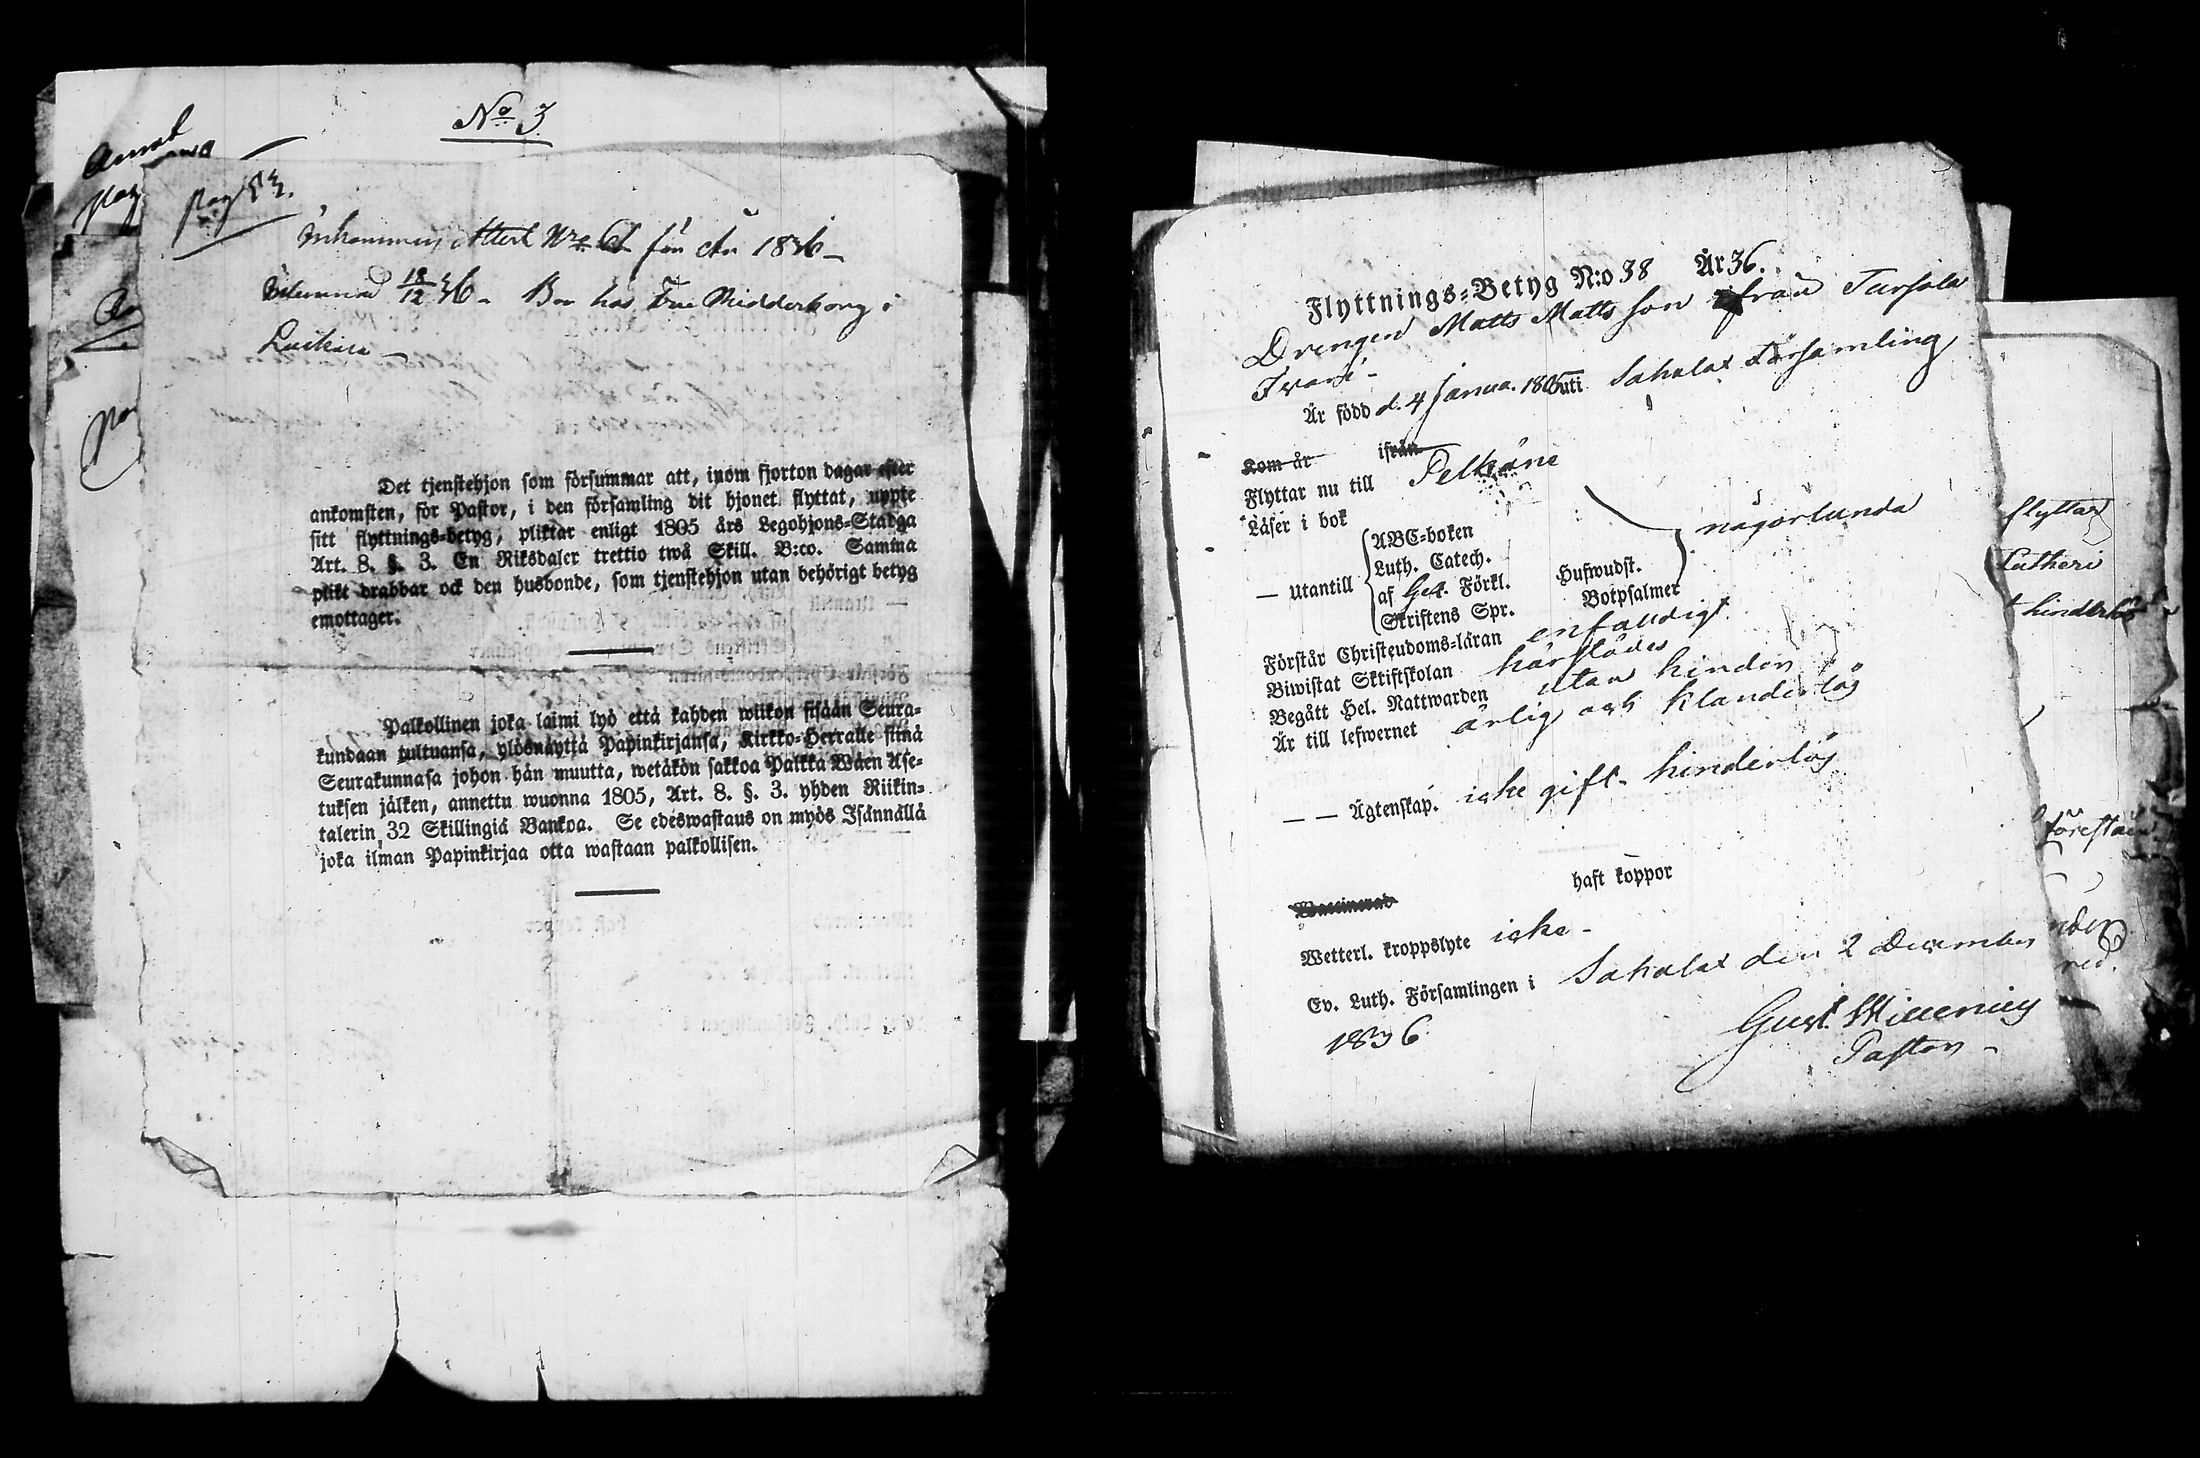 No 3
pag 53.
Inkommen Attest No 61 för År 1836 –
Bilemnad 18/12 36 – Bor hos Fru Ridderborg i
Luikala –
Det tjenstehjon som försummar att, inom fjorton dagar efter
ankomsten, för Pastor, i den församling dit hjonet flyttat, uppte
sitt flyttnings=betyg, pliktar enligt 1805 års Legohjons=Stadga
Art. 8. §. 3. En Riksdaler trettio twå Skill. B:co. Samma
plikt drabbar ock den husbonde, som tjenstehjon utan behörigt betyg
emottager.
Palkollinen joka laimi lyö että kahden wiikon sisään Seura=
kundaan tultuansa, ylösnäyttä Papinkirjansa, Kirkko=Herralle siinä
Seurakunnasa johon hän muutta, wetäkön sakkoa Palkka Wäen Ase=
tuksen jälken, annettu wuonna 1805, Art. 8. §. 3. yhden Riikin=
talerin 32 Skillingiä Bankoa. Se edeswastaus on myös Isännällä
joka ilman Papinkirjaa otta wastaan palkollisen.
Flyttnings=Betyg N:o 38 År 36.
Drengen Matts Mattsson ifrån Tursola
Är född d. 4 Janua. 1805 uti Sahalax Församling
Kom år ifrån
Flyttar nu till Pelkäne
Läser i bok
ABC=boken
Luth. Catech.
— utantill af Gez. Förkl. Hufwudst.
Skriftens Spr. Botpsalmer
någorlunda
Förstår Christendoms=läran enfaldigt
Biwistat Sktiftskolan härstädes
Begått Hel. Nattwarden utan hinder
Är till lefwernet ärlig och klanderlös
— — Ägtenskap. icke gift – hinderlös
Waccinerad haft koppor
Wetterl. kroppslyte icke –
Ev. Luth. Församlingen i Sahalax den 2 December
1836
Gust. Willenius
Pastor –
flyttar
Lutheri
hinderlös